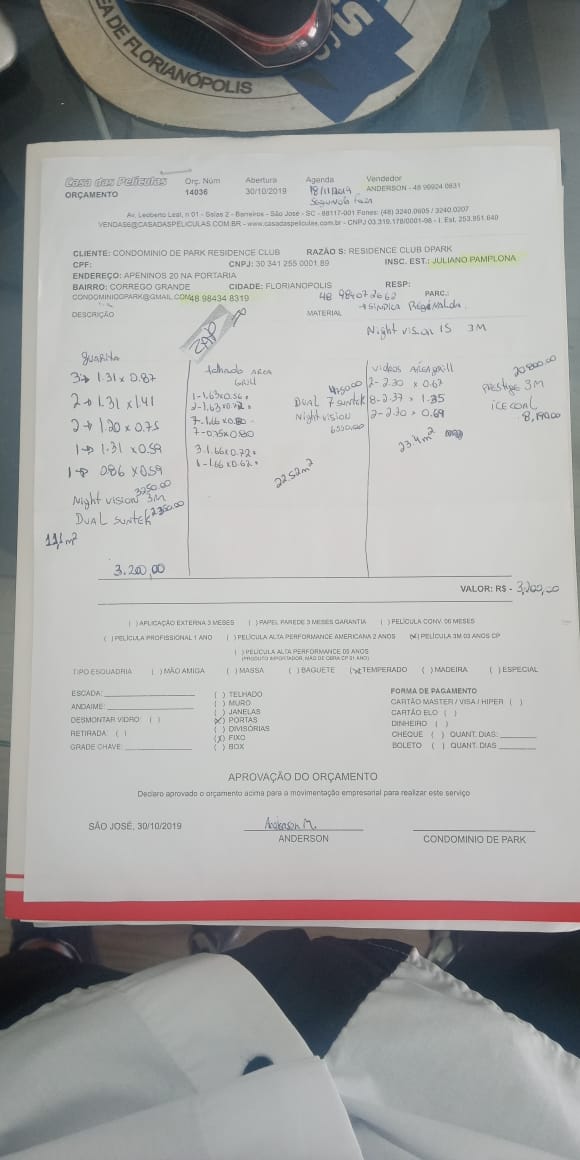 EA DE FLORIANÓPOLIS
Casa das Películas
ORÇAMENTO
Orç. Núm
14036
Abertura
30/10/2019
Agenda
18/11/2019
Segunda feira
Vendedor
ANDERSON - 48 99924 0831
Av. Leoberto Leal, n 01 - Salas 2 - Barreiros - São José - SC - 88117-001 Fones: (48) 3240.0605 / 3240.0207
VENDAS6@CASADASPELICULAS.COM.BR - www.casadaspeliculas.com.br - CNPJ 03.319.178/0001-98 - I. Est. 253.951.640
CLIENTE: CONDOMINIO DE PARK RESIDENCE CLUB RAZÃO S: RESIDENCE CLUB OPARK
CPF: CNPJ: 30 341 255 0001 89 INSC. EST.: JULIANO PAMPLONA
ENDEREÇO: APENINOS 20 NA PORTARIA
BAIRRO: CORREGO GRANDE CIDADE: FLORIANOPOLIS RESP: PARC.:
CONDOMINIOOPARK@GMAIL.COM 48 98434 8319
DESCRIÇÃO MATERIAL
Night vision 15 3M
GUARITA
3 → 1.31 x 0.87
2 → 1.31 x 1.41
2 → 1.20 x 0.75
1 → 1.31 x 0.59
1 → 0.86 x 0.59
3250.00
Night vision 3M
DUAL SUNTEK 2350.00
3.200,00
telhado AREA
Grill
1 - 1.63x0.56
2 - 1.63x0.72
7 - 1.66x0.80
7 - 0.75x0.80
3 - 1.66x0.72
1 - 1.66x0.62
22.52m²
Night vision
2 - 2.30 x 0.67
8 - 2.37 x 1.35
2 - 2.30 x 0.69
23.4m²
20800.00
Prestige 3M
VALOR: R$ - 3,200,00
( ) APLICAÇÃO EXTERNA 3 MESES ( ) PAPEL PAREDE 3 MESES GARANTIA ( ) PELÍCULA CONV. 06 MESES
( ) PELÍCULA PROFISSIONAL 1 ANO ( ) PELÍCULA ALTA PERFORMANCE AMERICANA 2 ANOS (x) PELÍCULA 3M 03 ANOS CP
( ) PELÍCULA ALTA PERFORMANCE 05 ANOS
TIPO ESQUADRIA ( ) MÃO AMIGA ( ) MASSA ( ) BAGUETE (x) TEMPERADO ( ) MADEIRA ( ) ESPECIAL
ESCADA:
ANDAIME:
DESMONTAR VIDRO: ( )
RETIRADA: ( )
GRADE CHAVE:
( ) TELHADO
( ) MURO
( ) JANELAS
(x) PORTAS
( ) DIVISÓRIAS
(x) FIXO
( ) BOX
FORMA DE PAGAMENTO
CARTÃO MASTER / VISA / HIPER ( )
CARTÃO ELO ( )
DINHEIRO ( )
CHEQUE ( ) QUANT. DIAS:
BOLETO ( ) QUANT. DIAS
APROVAÇÃO DO ORÇAMENTO
Declaro aprovado o orçamento acima para a movimentação empresarial para realizar este serviço
SÃO JOSÉ, 30/10/2019
Anderson M.
ANDERSON
CONDOMINIO DE PARK